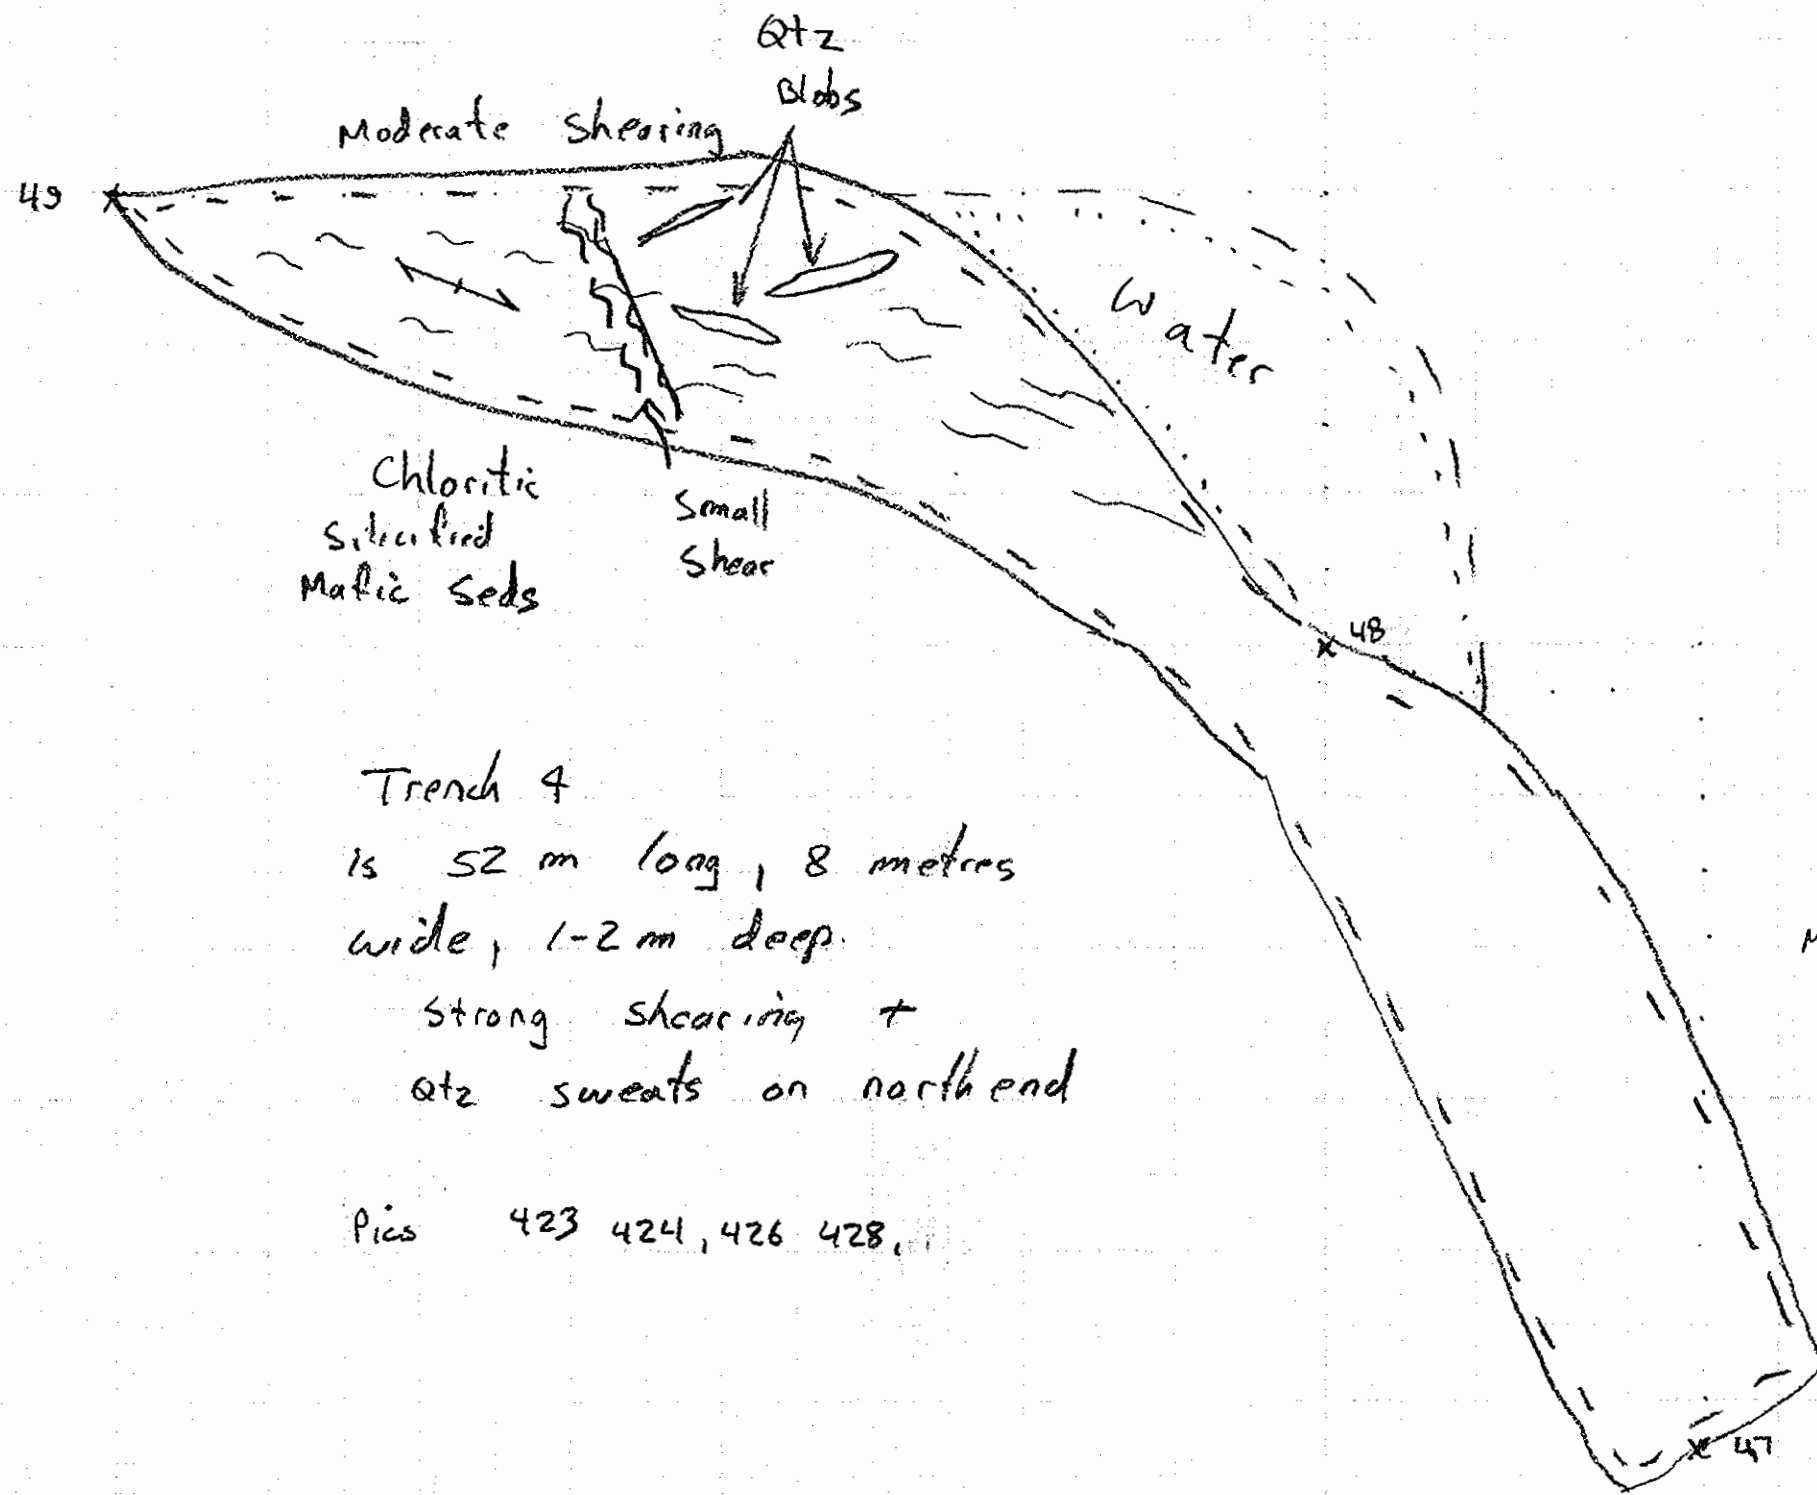 Qtz
Blobs
Moderate Shearing
49
Water
Chloritic
Silicified
Mafic Seds
Small
Shear
48
Trench 4
is 52 m long, 8 metres
wide, 1-2 m deep.
Strong Shearing +
Qtz sweats on north end
Pics 423 424, 426 428,
47